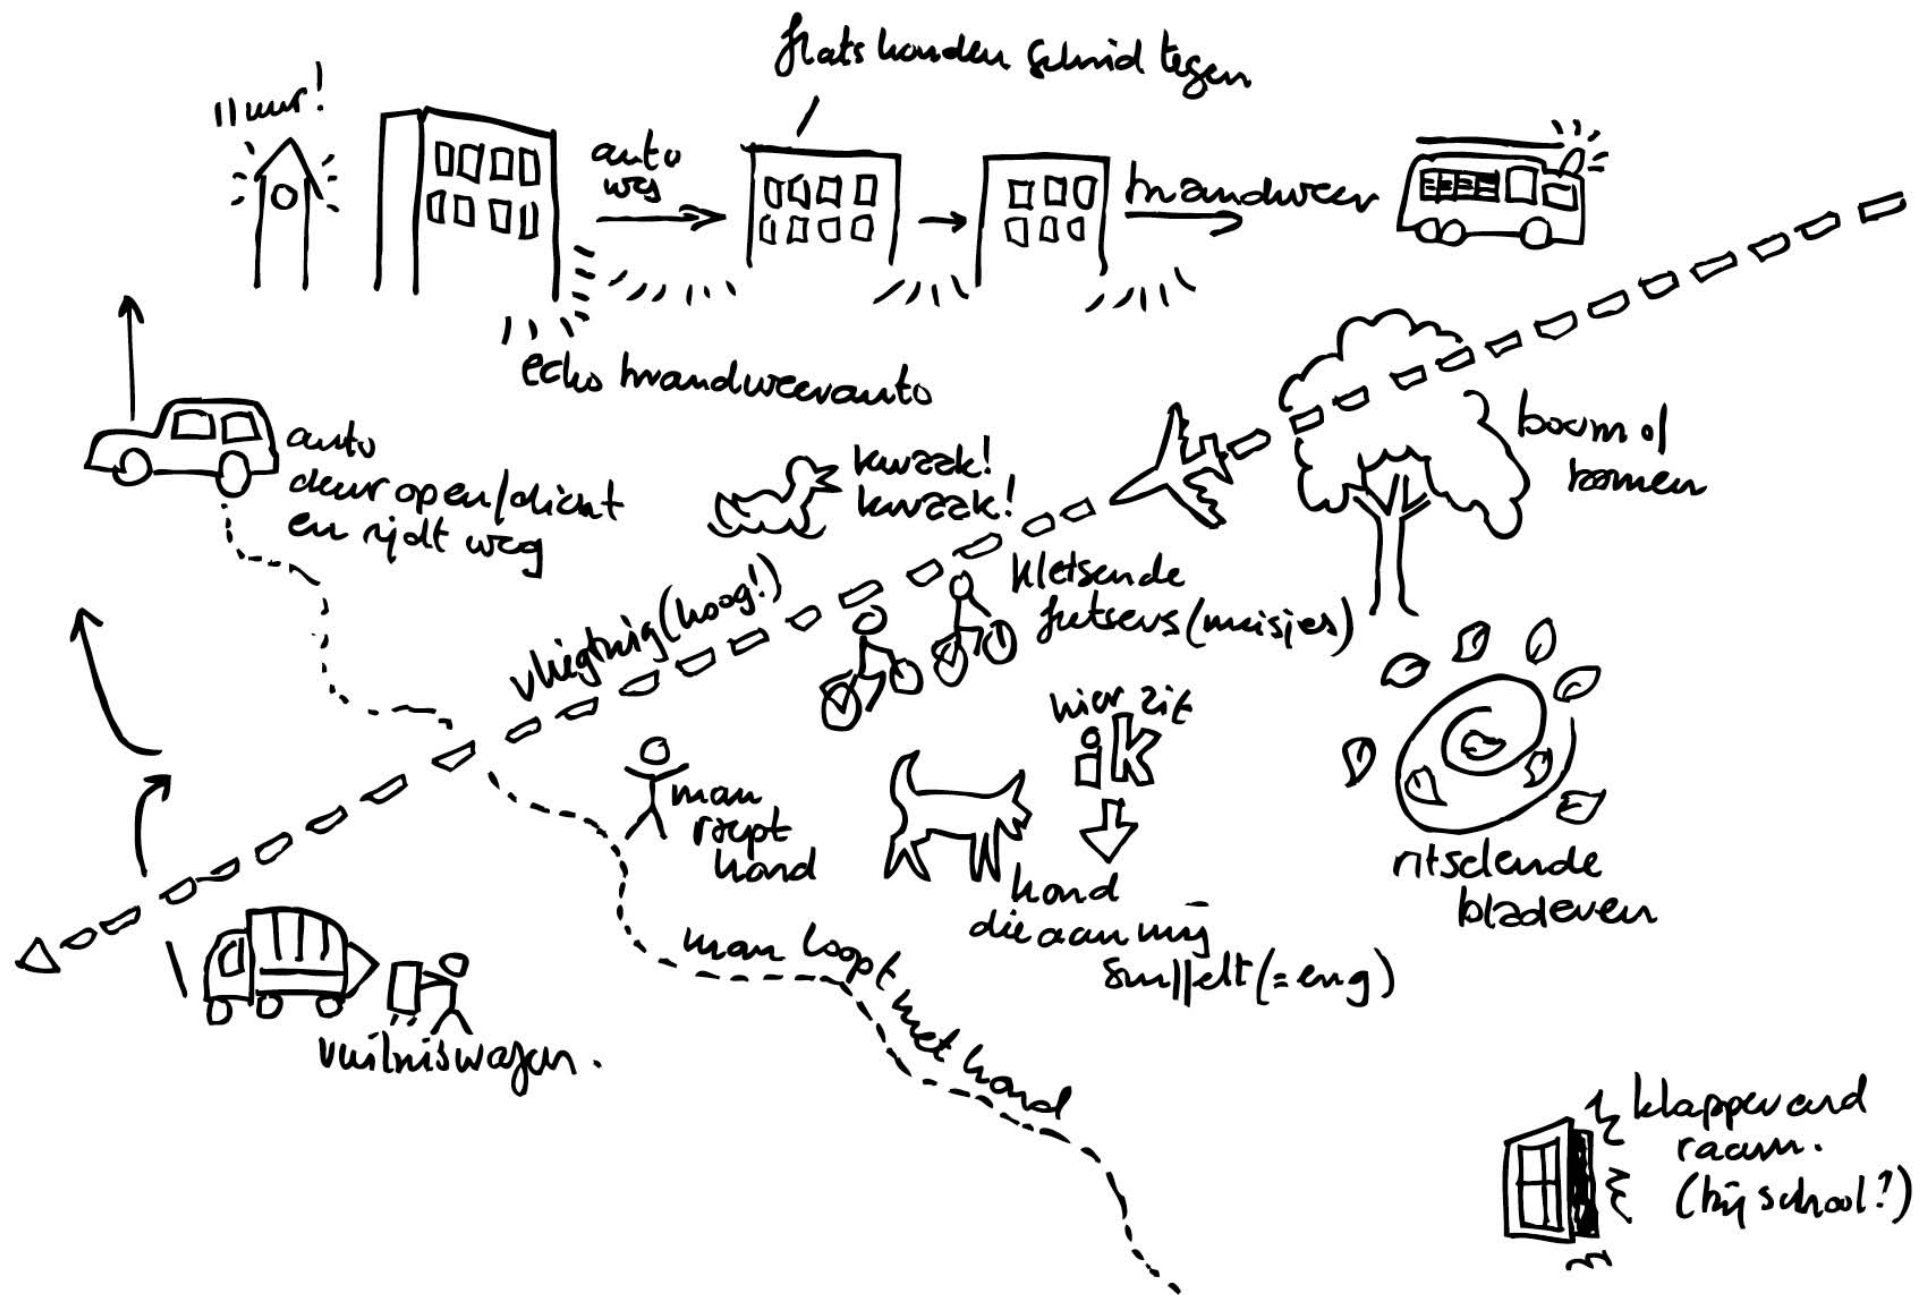 flats houden geluid tegen
11 uur!
auto
weg
brandweer
echo brandweerauto
auto
deur open/dicht
en rijdt weg
kwaak!
kwaak!
boom of
bomen
vliegtuig (hoog!)
kletsende
fietsers (meisjes)
hier zit
ik
man
roept
hond
hond
die aan mij
snuffelt (= eng)
ritselende
bladeren
man loopt met hond
vuilniswagen.
klapperend
raam.
(bij school?)